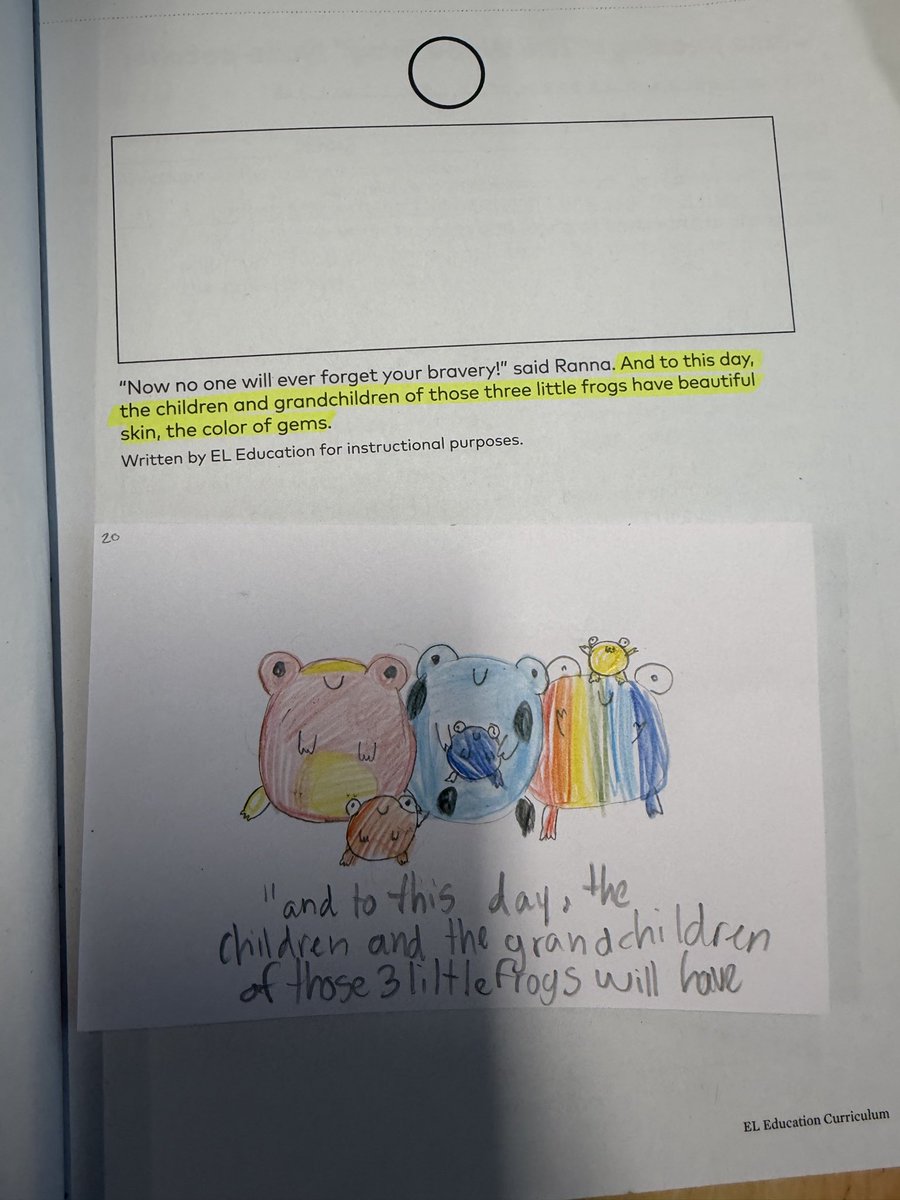 “Now no one will ever forget your bravery!” said Ranna. And to this day,
the children and grandchildren of those three little frogs have beautiful
skin, the color of gems.
Written by EL Education for instructional purposes.
20
"and to this day, the
children and the grandchildren
of those 3 liltle frogs will have
EL Education Curriculum